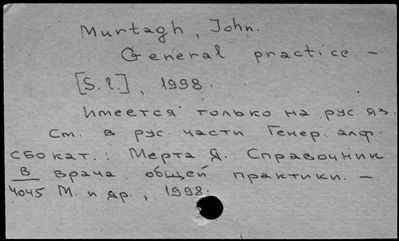 Murtagh, John.
General practice. –
[S. l.], 1998.
Имеется только на рус яз.
См. в рус части Генер. алф.
сбо кат.: Мерта Я. Справочник
В врача общей практики. –
4045 М. и др., 1998.